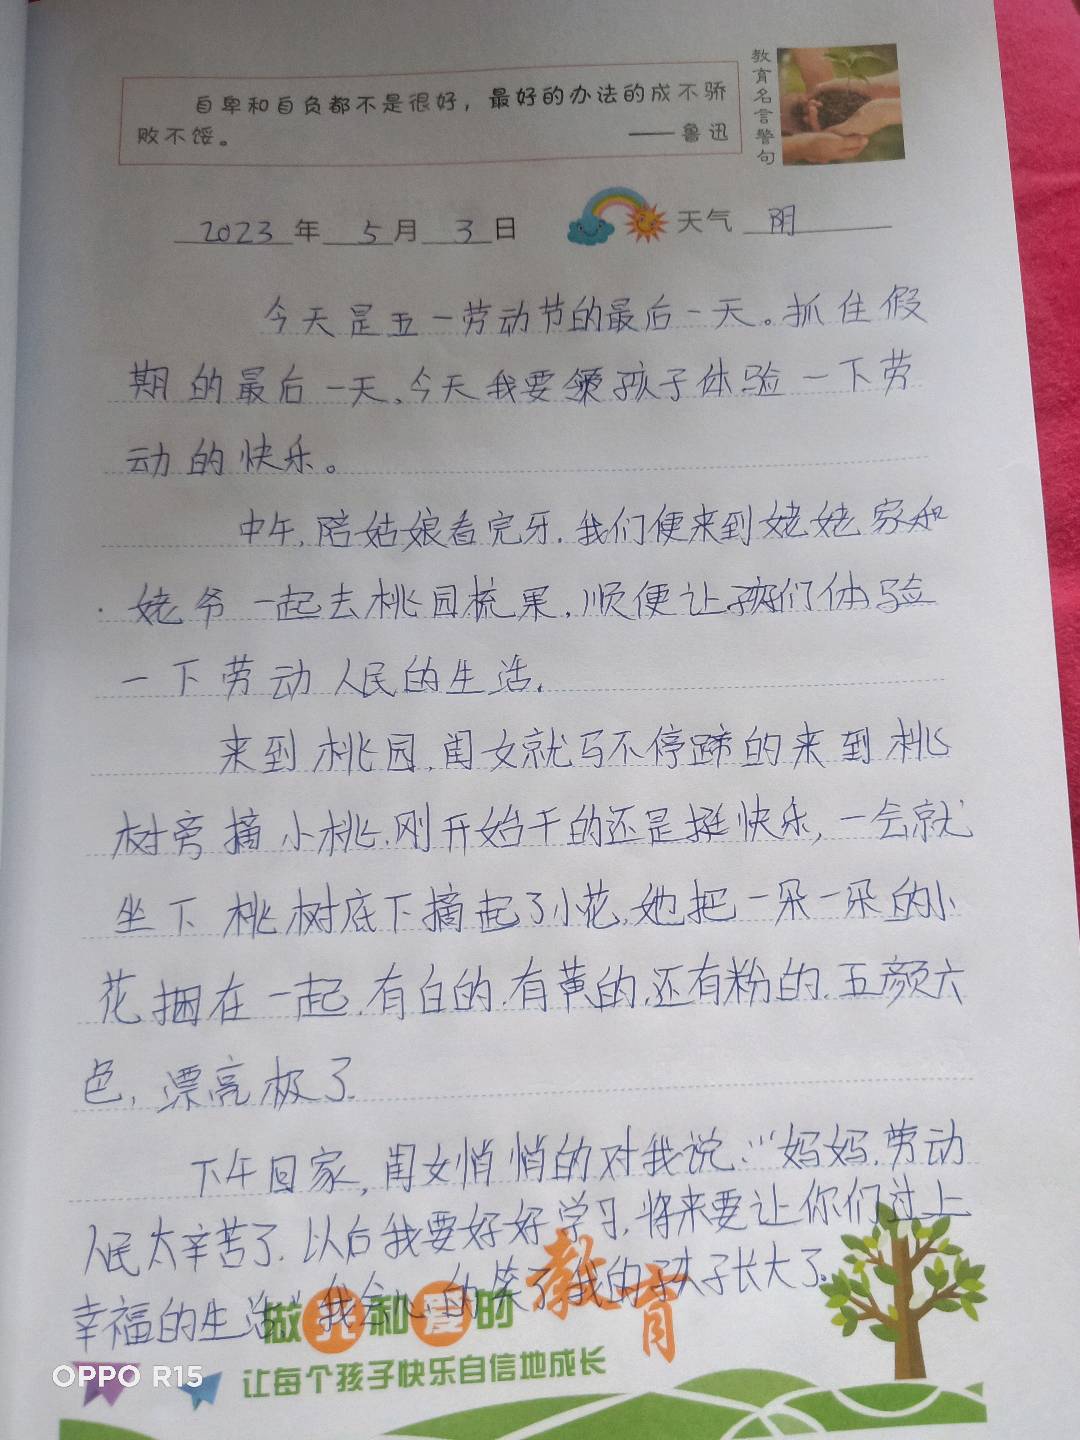 自卑和自负都不是很好，最好的办法的成不骄
败不馁。
——鲁迅
教育名言警句
2023年 5月 3日 天气 阴
今天是五一劳动节的最后一天。抓住假
期的最后一天，今天我要领孩子体验一下劳
动的快乐。
中午，陪姑娘看完牙，我们便来到姥姥家和
姥爷一起去桃园梳果，顺便让孩们体验
一下劳动人民的生活。
来到桃园，闺女就马不停蹄的来到桃
树旁摘小桃，刚开始干的还是挺快乐，一会就
坐下桃树底下摘起了小花，她把一朵一朵的小
花捆在一起，有白的，有黄的，还有粉的，五颜六
色，漂亮极了。
下午回家，闺女悄悄的对我说："妈妈，劳动
人民太辛苦了，以后我要好好学习，将来要让你们过上
幸福的生活。"我会心的笑了，我的孩子长大了。
做 和 的教育
让每个孩子快乐自信地成长
OPPO R15